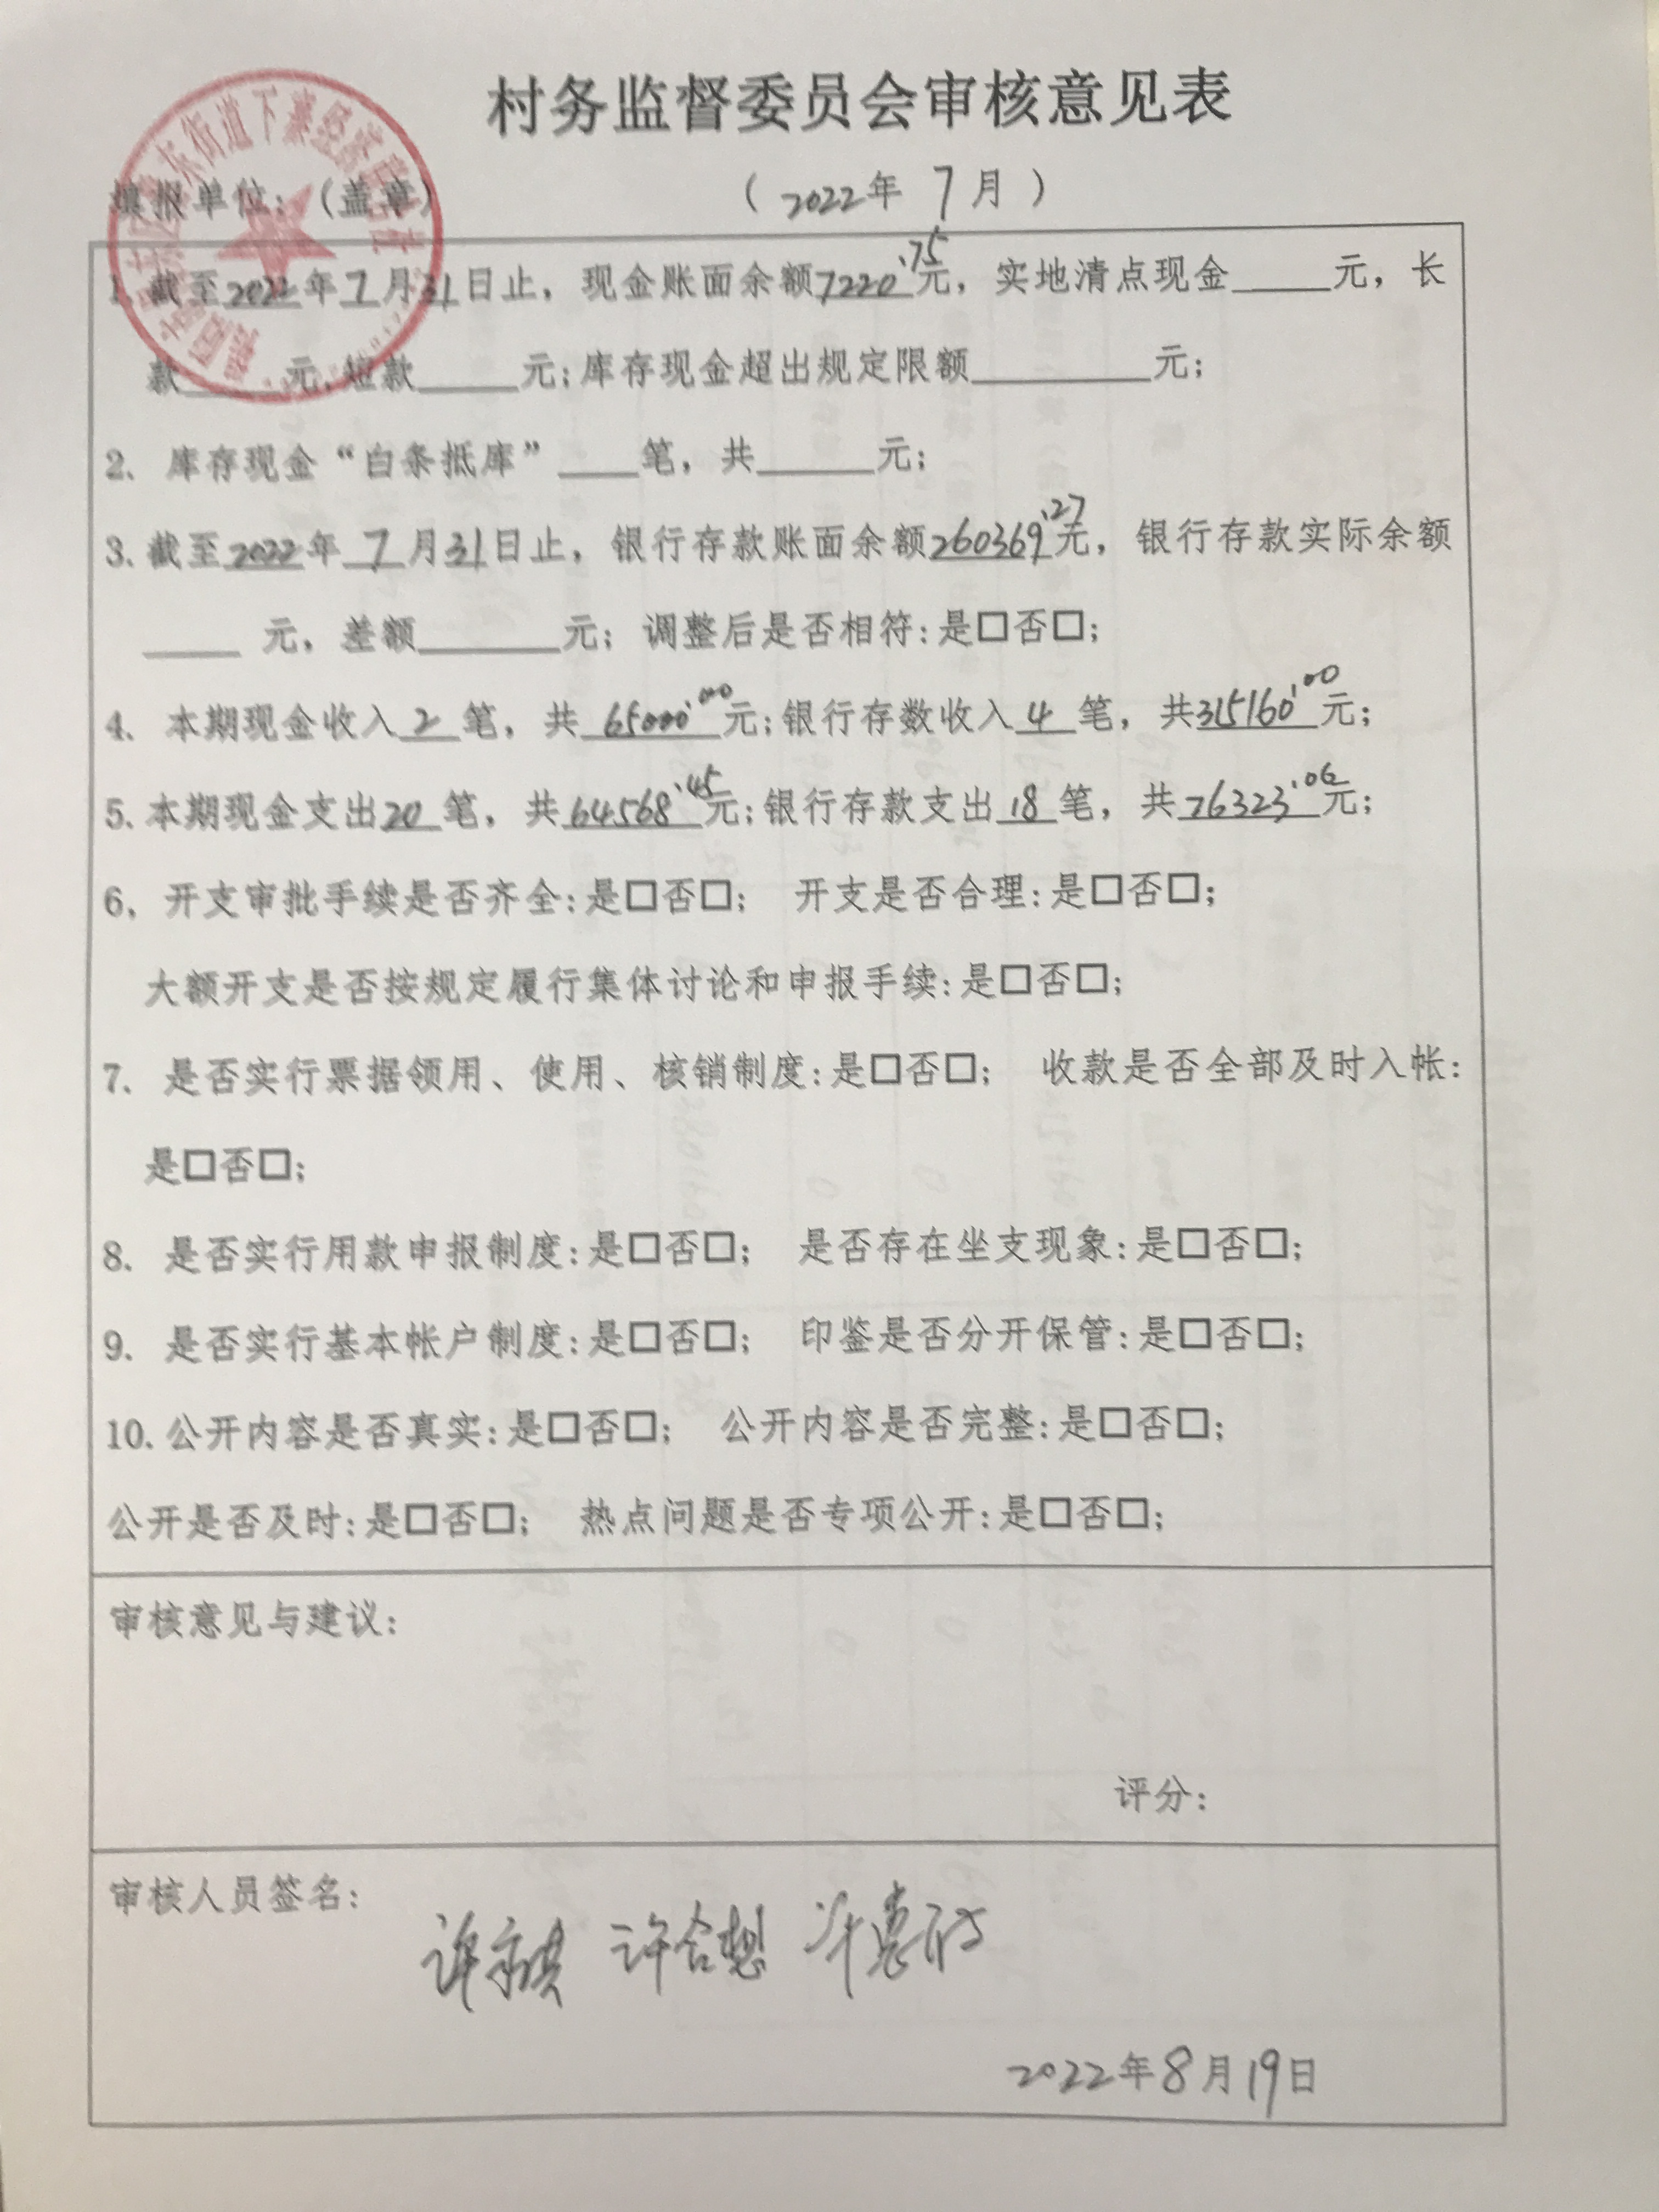 村务监督委员会审核意见表
填报单位：（盖章）
（2022年 7月）
1.截至2022年7月31日止，现金账面余额7220.75元，实地清点现金_____元，长
款_____元,短款_____元;库存现金超出规定限额_________元;
2. 库存现金“白条抵库”____笔，共______元;
3.截至2022年 7月31日止，银行存款账面余额260369.27元，银行存款实际余额
_____ 元，差额_______元; 调整后是否相符:是□否□;
4. 本期现金收入 2 笔，共 65000.00元;银行存数收入 4 笔，共315160.00元;
5.本期现金支出20 笔，共64568.45元;银行存款支出 18 笔，共76323.06元;
6. 开支审批手续是否齐全:是□否□; 开支是否合理:是□否□;
大额开支是否按规定履行集体讨论和申报手续:是□否□;
7. 是否实行票据领用、使用、核销制度:是□否□; 收款是否全部及时入帐:
是□否□;
8. 是否实行用款申报制度:是□否□; 是否存在坐支现象:是□否□;
9. 是否实行基本帐户制度:是□否□; 印鉴是否分开保管:是□否□;
10.公开内容是否真实:是□否□; 公开内容是否完整:是□否□;
公开是否及时:是□否□; 热点问题是否专项公开:是□否□;
审核意见与建议:
评分:
审核人员签名:
许 许合想 许惠
2022年8月19日